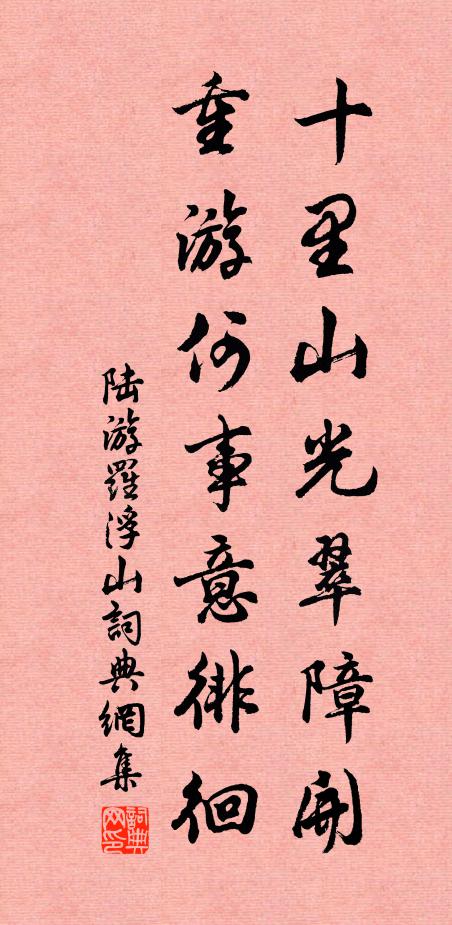 十里山光翠障開
重游何事意徘徊
陆游羅浮山詞典網集
詞典网印